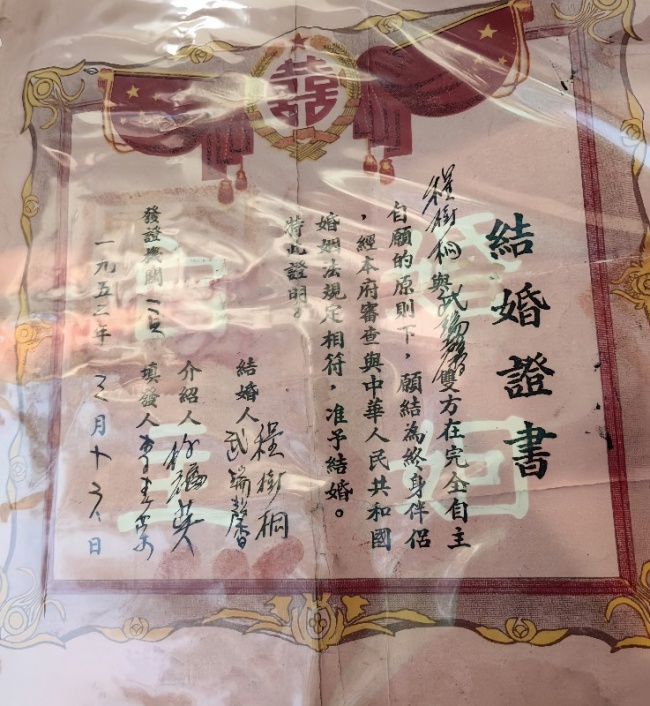 結婚證書
程樹桐與武瑞馨雙方在完全自主
自願的原則下，願結為終身伴侶
，經本府審查與中華人民共和國
婚姻法規定相符，准予結婚。
特此證明。
程樹桐
結婚人 武瑞馨
介紹人
填發人
發證機關
一九五二年 月十日
婚姻
自主
囍